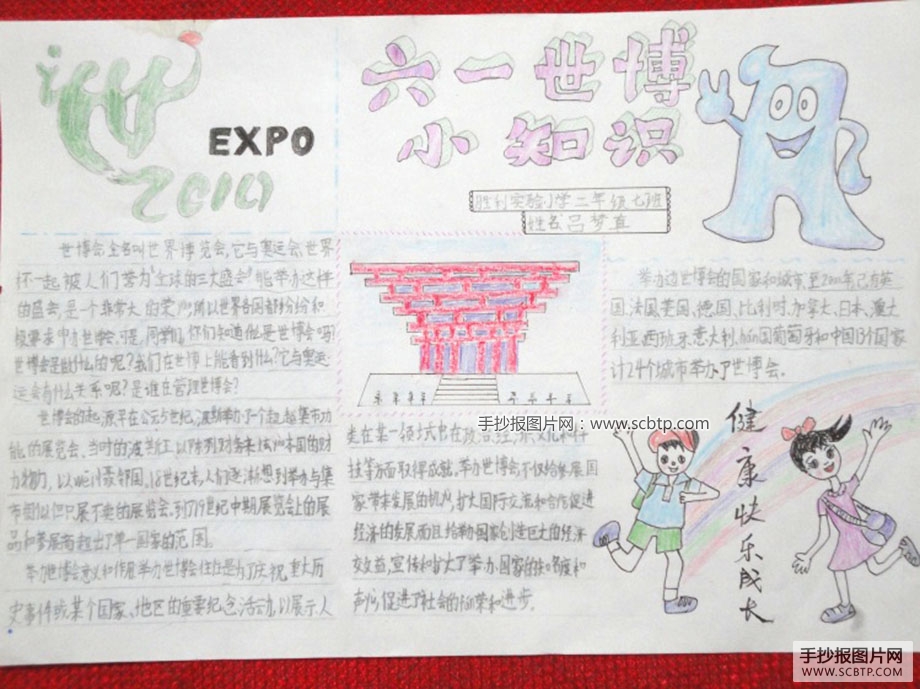 世
EXPO
2010
六一世博
小知识
胜利实验小学二年级七班
姓名
世博会全名叫世界博览会,它与奥运会、世界
杯一起被人们誉为"全球的三大盛会"能举办这样
的盛会,是一个非常大的荣
世博会是能什么的呢?我们在世博上能看到什么?它与奥运
运会有什么关系呢?是谁在管理世博会?
世博会的起源早在公元5世纪,波斯举办了个超越集市功
能的展览会。当时的波
力物力,以邻国。18世纪末,人们逐渐想到举办与集
市相似但只展不卖的展览会,到了19世纪中期展览会上的展
品和参展商超出了单一国家的范围。
举办世博会意义和作用举办世博会往往是为了庆祝重大历
史事件或某个国家、地区的重要纪念活动,以展示人
走在某一领域
技等方面取得成就,举办世博会不仅给参展国
家带来发展的机会,扩大国际交流和合作促进
经济的发展而且给举办国家创造巨大的经济
效益,宣传和扩大了举办国家的知名度和
声促进了社会的和进步。
举办过世博会的国家和城市,至2010年已有英
国、法国、美国、德国、比利时、加拿大、日本、澳大
利亚、西班牙、意大利、国葡萄牙和中国13个国家
计24个城市举办了世博会。
健康快乐成长
手抄报图片网:www.scbtp.com
手抄报图片网
WWW.SCBTP.COM